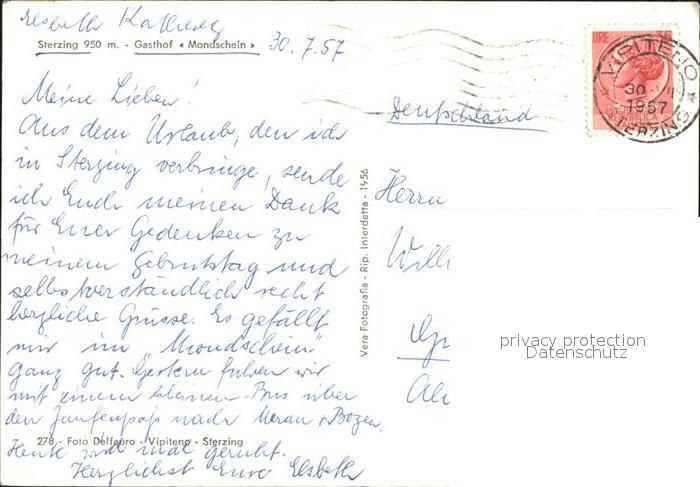 Elsbeth
Sterzing 950 m. - Gasthof « Mondschein » 30.7.57
Meine Lieben!
Aus dem Urlaub, den ich
in Sterzing verbringe, sende
ich Euch meinen Dank
für Euer Gedenken zu
meinem Geburtstag und
selbstverständlich recht
herzliche Grüsse. Es gefällt
mir im "Mondschein"
ganz gut. Gestern fuhren wir
mit einem kleinen Bus über
den Jaufenpaß nach Meran u. Bozen.
278 - Foto Delfauro - Vipiteno - Sterzing
Heute wird mal geruht.
Herzlichst Eure Elsbeth
Vera Fotografia - Rip. Interdetta - 1956
VIPITENO
30
1957
STERZING
Deutschland
Herrn
Willi
privacy protection
Datenschutz